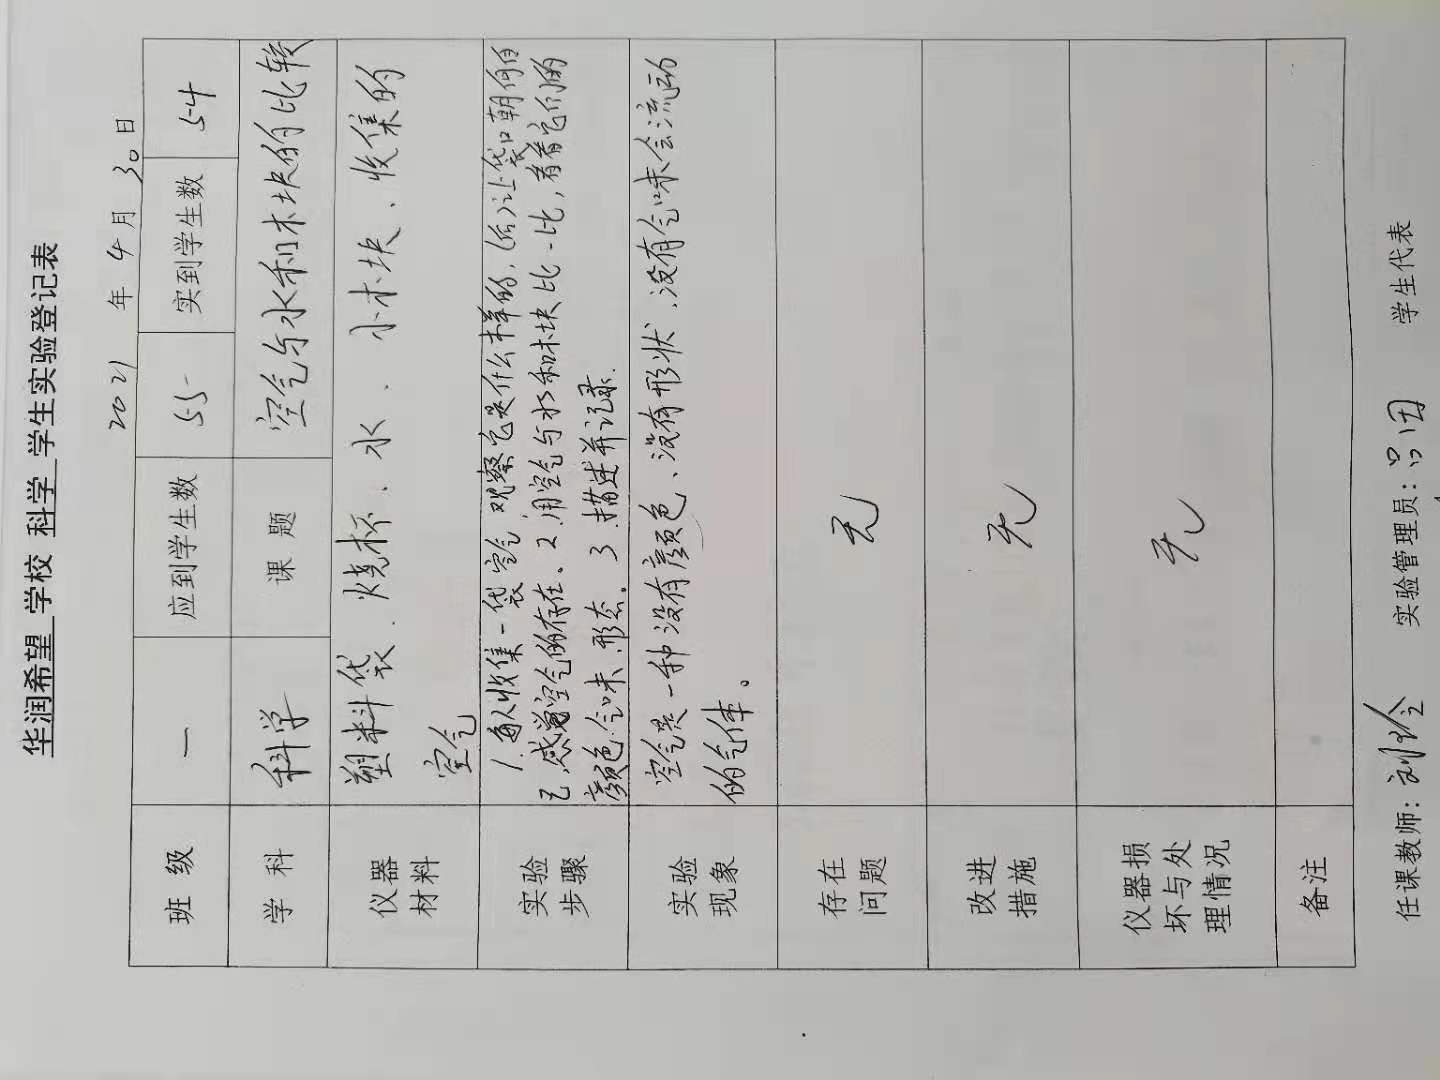 华润希望 学校 科学 学生实验登记表
2021 年 4 月 30 日
班 级 一 应到学生数 55 实到学生数 54
学 科 科学 课 题 空气与水和木块的比较
仪器 材料 塑料袋、烧杯、水、小木块、收集的
空气
实验 步骤 1.每人收集一袋空气,观察它是什么样的,(后)让袋口朝向自
己,感觉空气的存在。2.用空气与水和木块比一比,看看它们的
颜色、气味、形态。3.描述并记录.
实验 现象 空气是一种没有颜色、没有形状、没有气味会流动
的气体。
存在 问题 无
改进 措施 无
仪器损 坏与处 理情况 无
备注
任课教师: 刘 实验管理员: 吕 学生代表